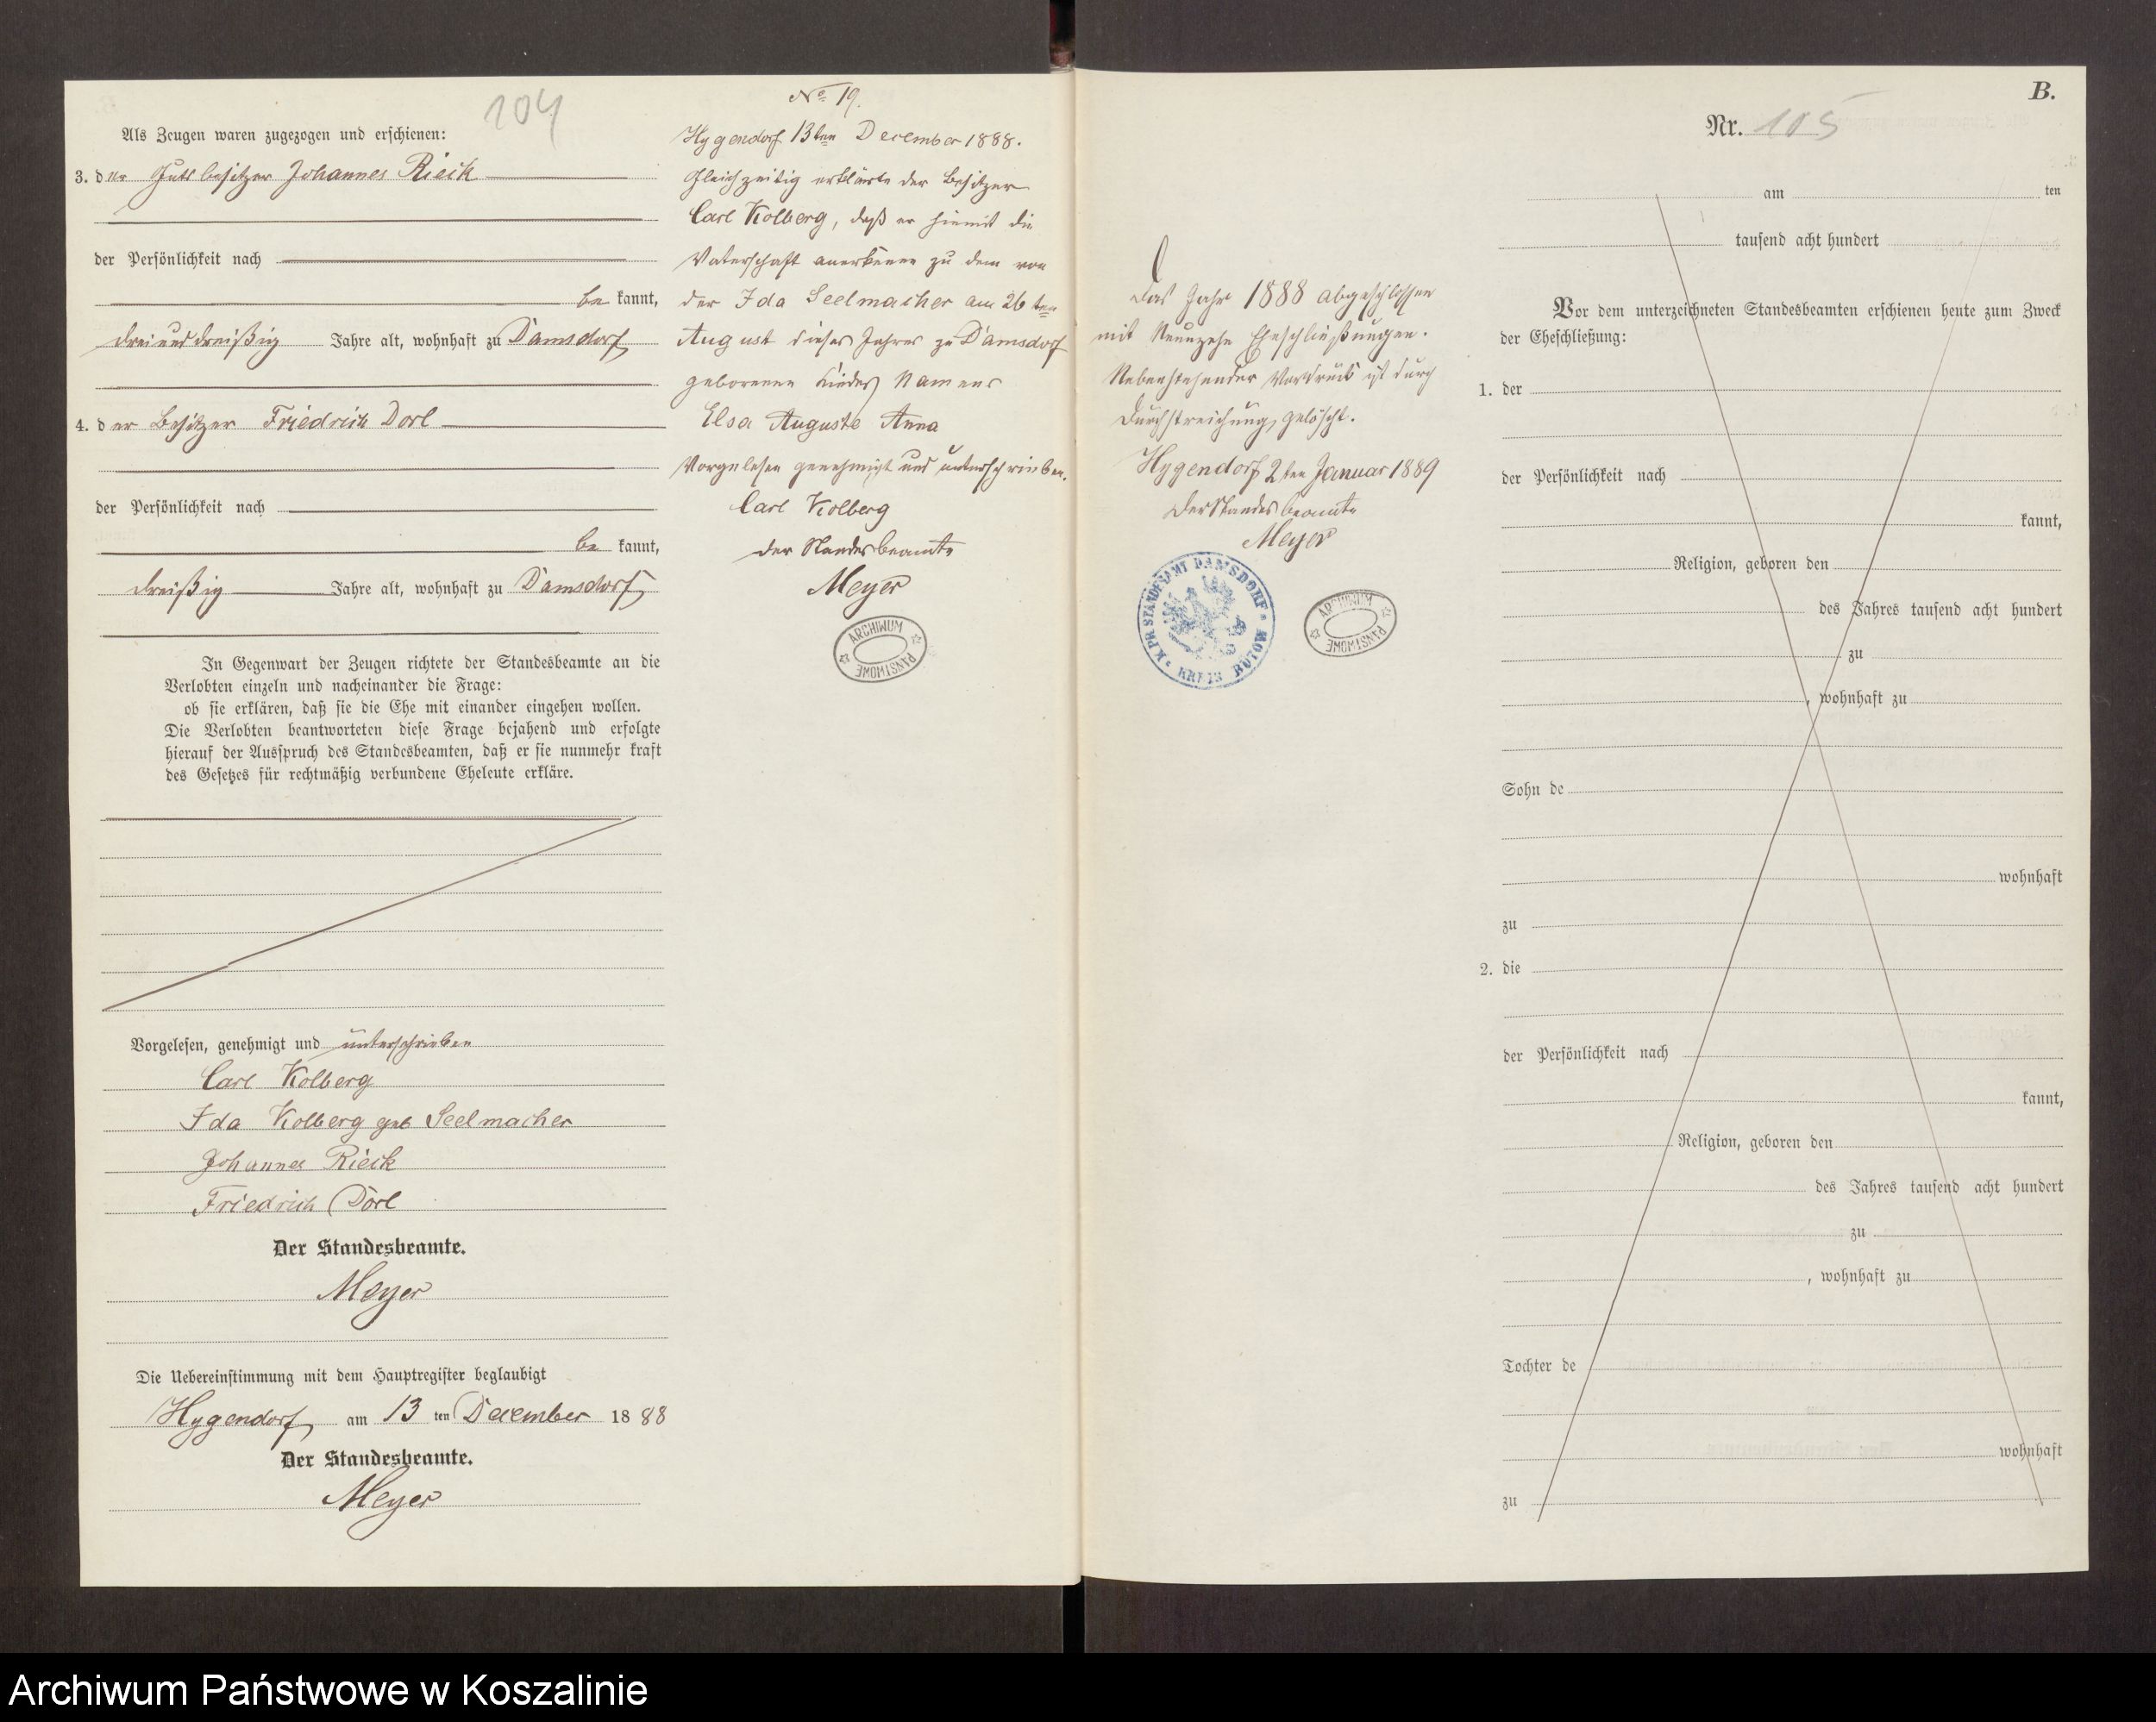 104
Als Zeugen waren zugezogen und erschienen:
3. der Gutsbesitzer Johannes Rieck
der Persönlichkeit nach
be kannt,
dreiunddreißig Jahre alt, wohnhaft zu Damsdorf
4. der Besitzer Friedrich Dorl
der Persönlichkeit nach
be kannt,
dreißig Jahre alt, wohnhaft zu Damsdorf
In Gegenwart der Zeugen richtete der Standesbeamte an die
Verlobten einzeln und nacheinander die Frage:
ob sie erklären, daß sie die Ehe mit einander eingehen wollen.
Die Verlobten beantworteten diese Frage bejahend und erfolgte
hierauf der Ausspruch des Standesbeamten, daß er sie nunmehr kraft
des Gesetzes für rechtmäßig verbundene Eheleute erkläre.
Vorgelesen, genehmigt und unterschrieben
Carl Kolberg
Ida Kolberg geb Seelmacher
Johannes Rieck
Friedrich Dorl
Der Standesbeamte.
Meyer
Die Uebereinstimmung mit dem Hauptregister beglaubigt
Hygendorf am 13 ten December 18 88
Der Standesbeamte.
Meyer
No 19.
Hygendorf 13ten December 1888.
Gleichzeitig erklärte der Besitzer
Carl Kolberg, daß er hiemit die
Vaterschaft anerkenne zu dem von
der Ida Seelmacher am 26ten
August dieses Jahres zu Damsdorf
geborenen Kindes Namens
Elsa Auguste Anna
Vorgelesen genehmigt und unterschrieben.
Carl Kolberg
der Standesbeamte
Meyer
ARCHIWUM PAŃSTWOWE
Das Jahr 1888 abgeschlossen
mit Neunzehn Eheschließungen.
Nebenstehender Vordruck ist durch
Durchstreichung gelöscht.
Hygendorf 2ten Januar 1889
Der Standesbeamte
Meyer
K. PR. STANDESAMT DAMSDORF KREIS BÜTOW
ARCHIWUM PAŃSTWOWE
B.
Nr. 105
am ten
tausend acht hundert
Vor dem unterzeichneten Standesbeamten erschienen heute zum Zweck
der Eheschließung:
1. der
der Persönlichkeit nach
kannt,
Religion, geboren den
des Jahres tausend acht hundert
zu
, wohnhaft zu
Sohn de
wohnhaft
zu
2. die
der Persönlichkeit nach
kannt,
Religion, geboren den
des Jahres tausend acht hundert
zu
, wohnhaft zu
Tochter de
wohnhaft
zu
Archiwum Państwowe w Koszalinie